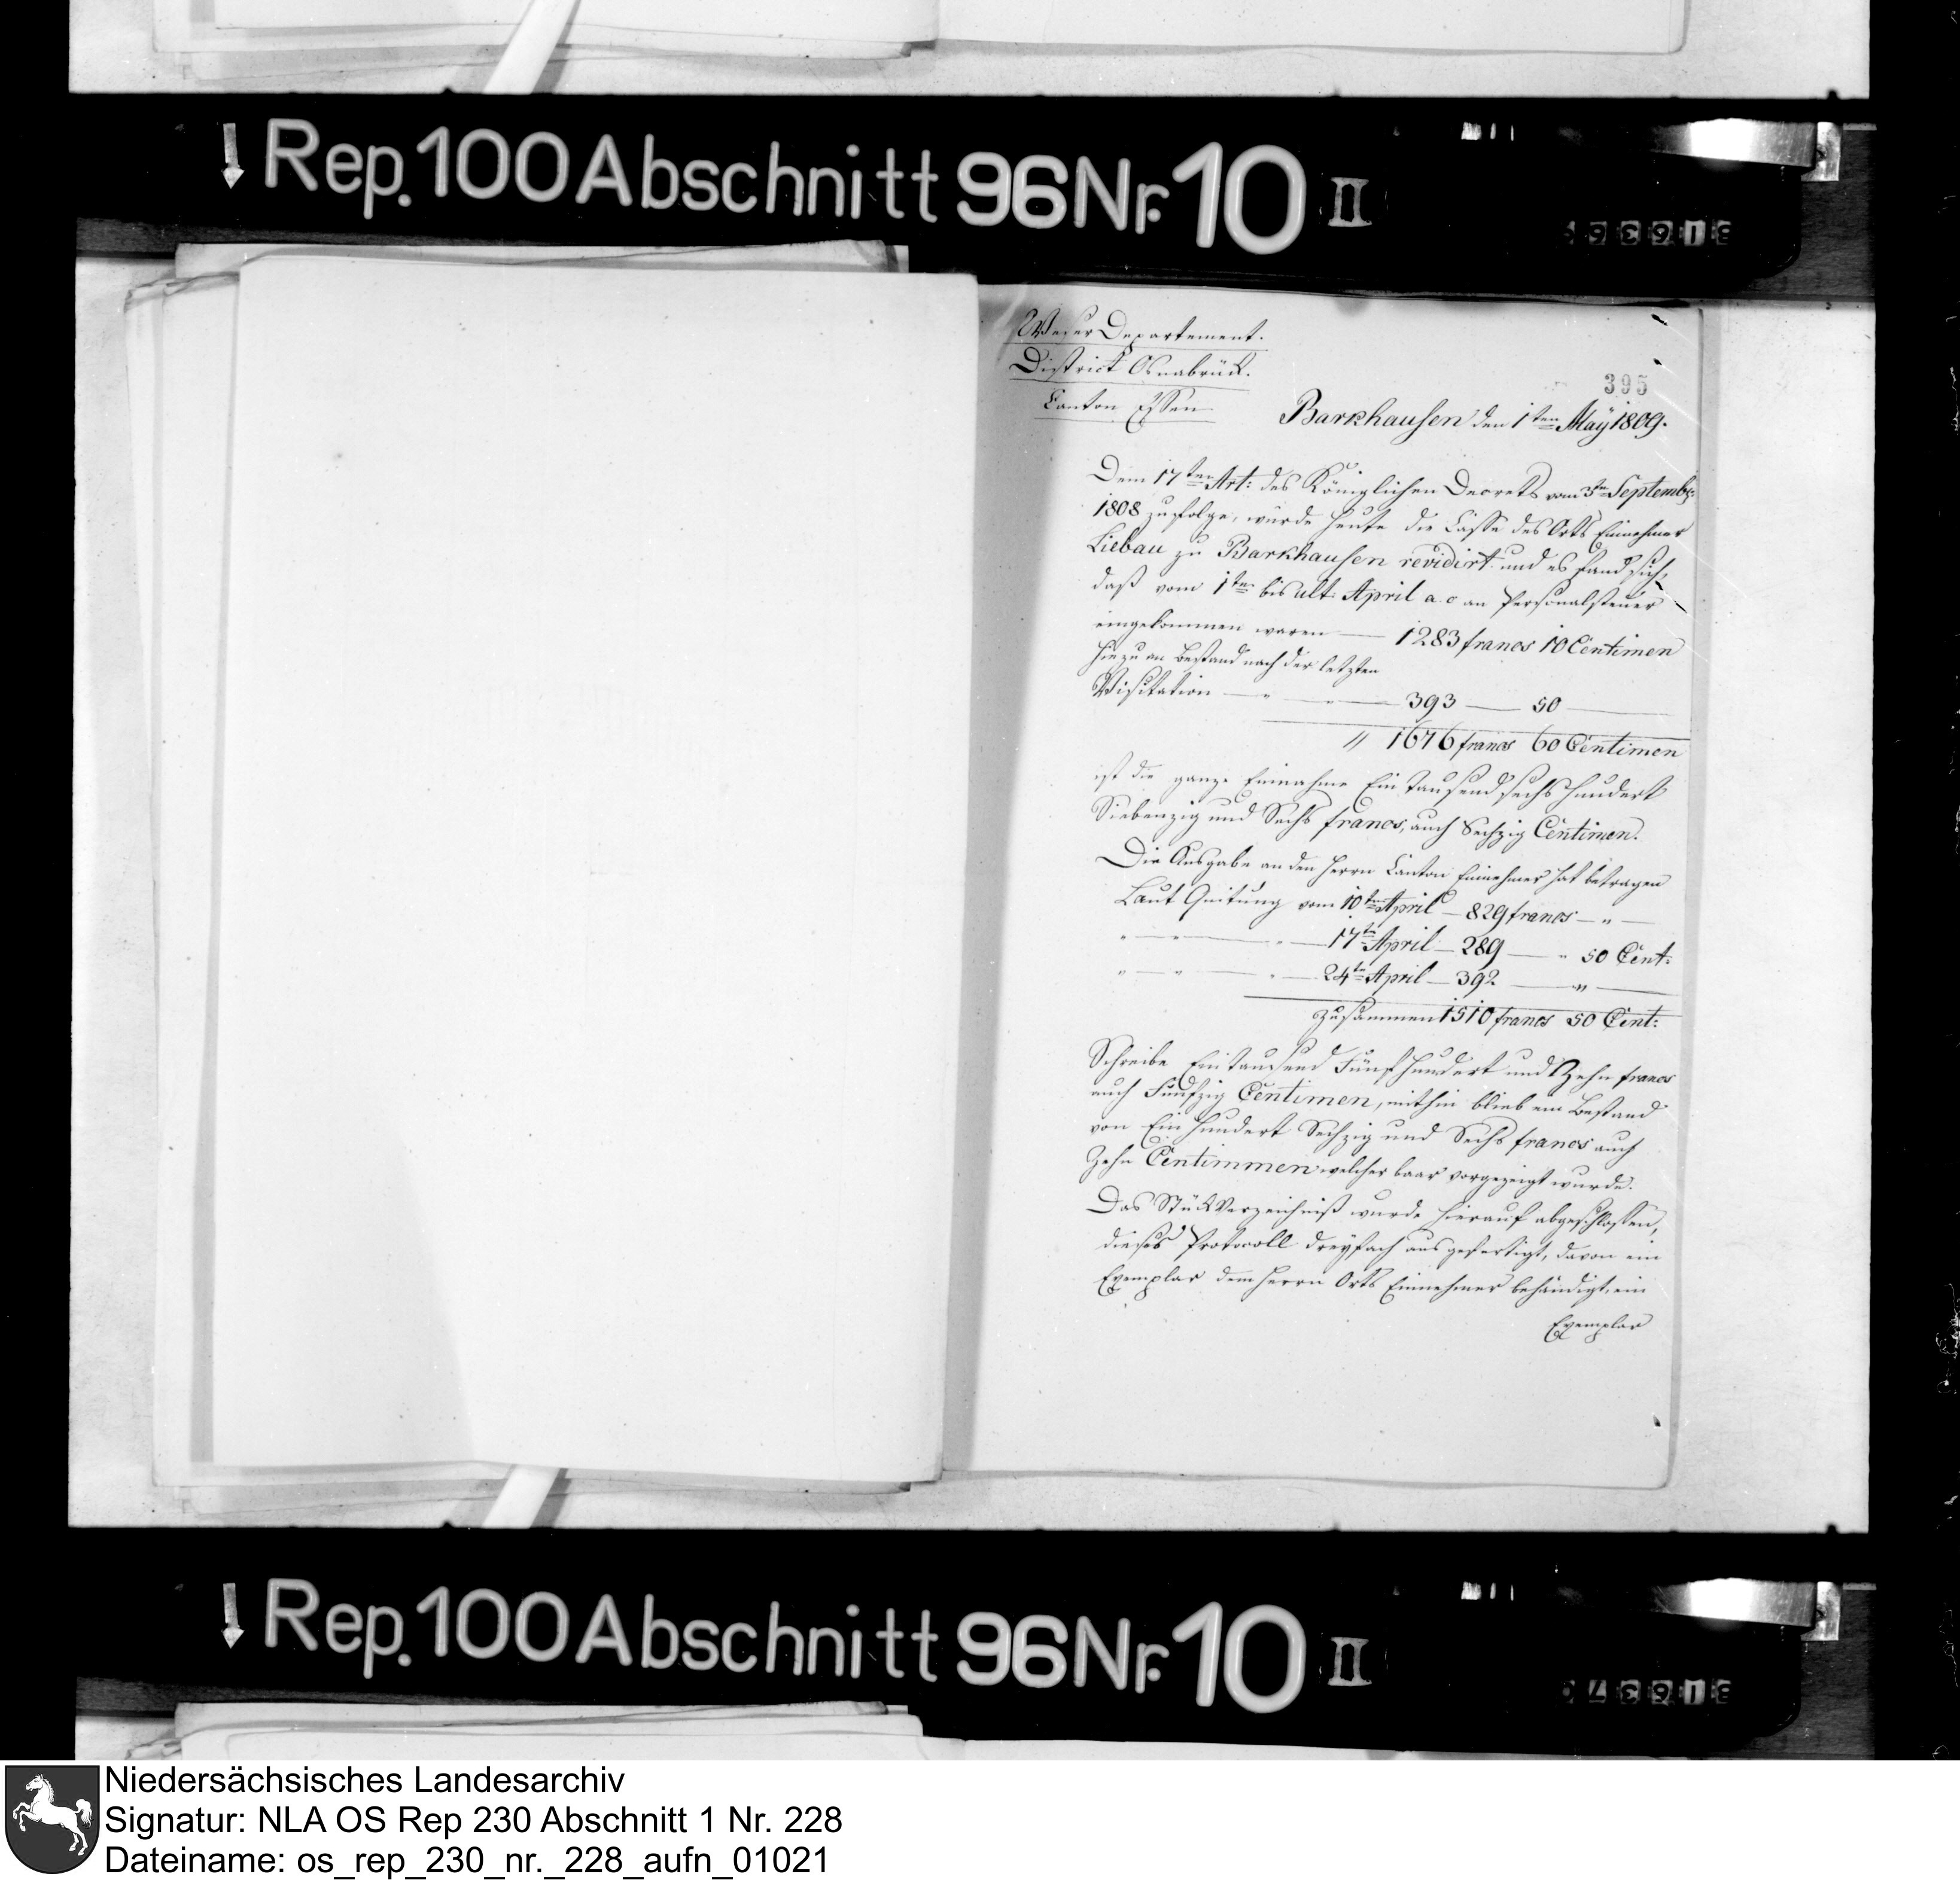 Rep. 100 Abschnitt 96 Nr. 10 II
Weser Departement.
District Osnabrück.
Canton Essen
395
Barkhausen den 1ten Maÿ 1809.
Dem 17ten Art: des Königlichen Decrets vom 3ten Septembr:
1808 zufolge, wurde heute die Casse des Orts Einnehmer
Liebau zu Barkhausen revidirt und es fand sich,
daß vom 1ten bis ult: April a. c an Personalsteuer
eingekommen waren — 1283 francs 10 Centimen
Hiezu an Bestand nach der letzten
Visitation — " — " — 393 — 50 —
" 1676 francs 60 Centimen
ist die ganze Einnahme Ein tausend sechs hundert
Siebenzig und Sechs francs, auch Sechzig Centimen.
Die Ausgabe an den Herrn Canton Einnehmer hat betragen
Laut Quitung vom 10ten April — 829 francs — " —
" — " — " — 17ten April — 289 — " 50 Cent:
" — " — " — 24ten April — 392 — " —
Zusammen 1510 francs 50 Cent:
Schreibe Ein tausend Fünf hundert und Zehn francs
auch Fünfzig Centimen, mithin blieb ein Bestand
von Ein hundert Sechzig und Sechs francs auch
Zehn Centimmen welcher baar vorgezeigt wurde.
Das Stück Verzeichniß wurde hierauf abgeschlossen,
dieses Protocoll dreyfach ausgefertigt, davon ein
Exemplar dem Herrn Orts Einnehmer behändigt, ein
Exemplar
Rep. 100 Abschnitt 96 Nr. 10 II
Niedersächsisches Landesarchiv
Signatur: NLA OS Rep 230 Abschnitt 1 Nr. 228
Dateiname: os_rep_230_nr._228_aufn_01021